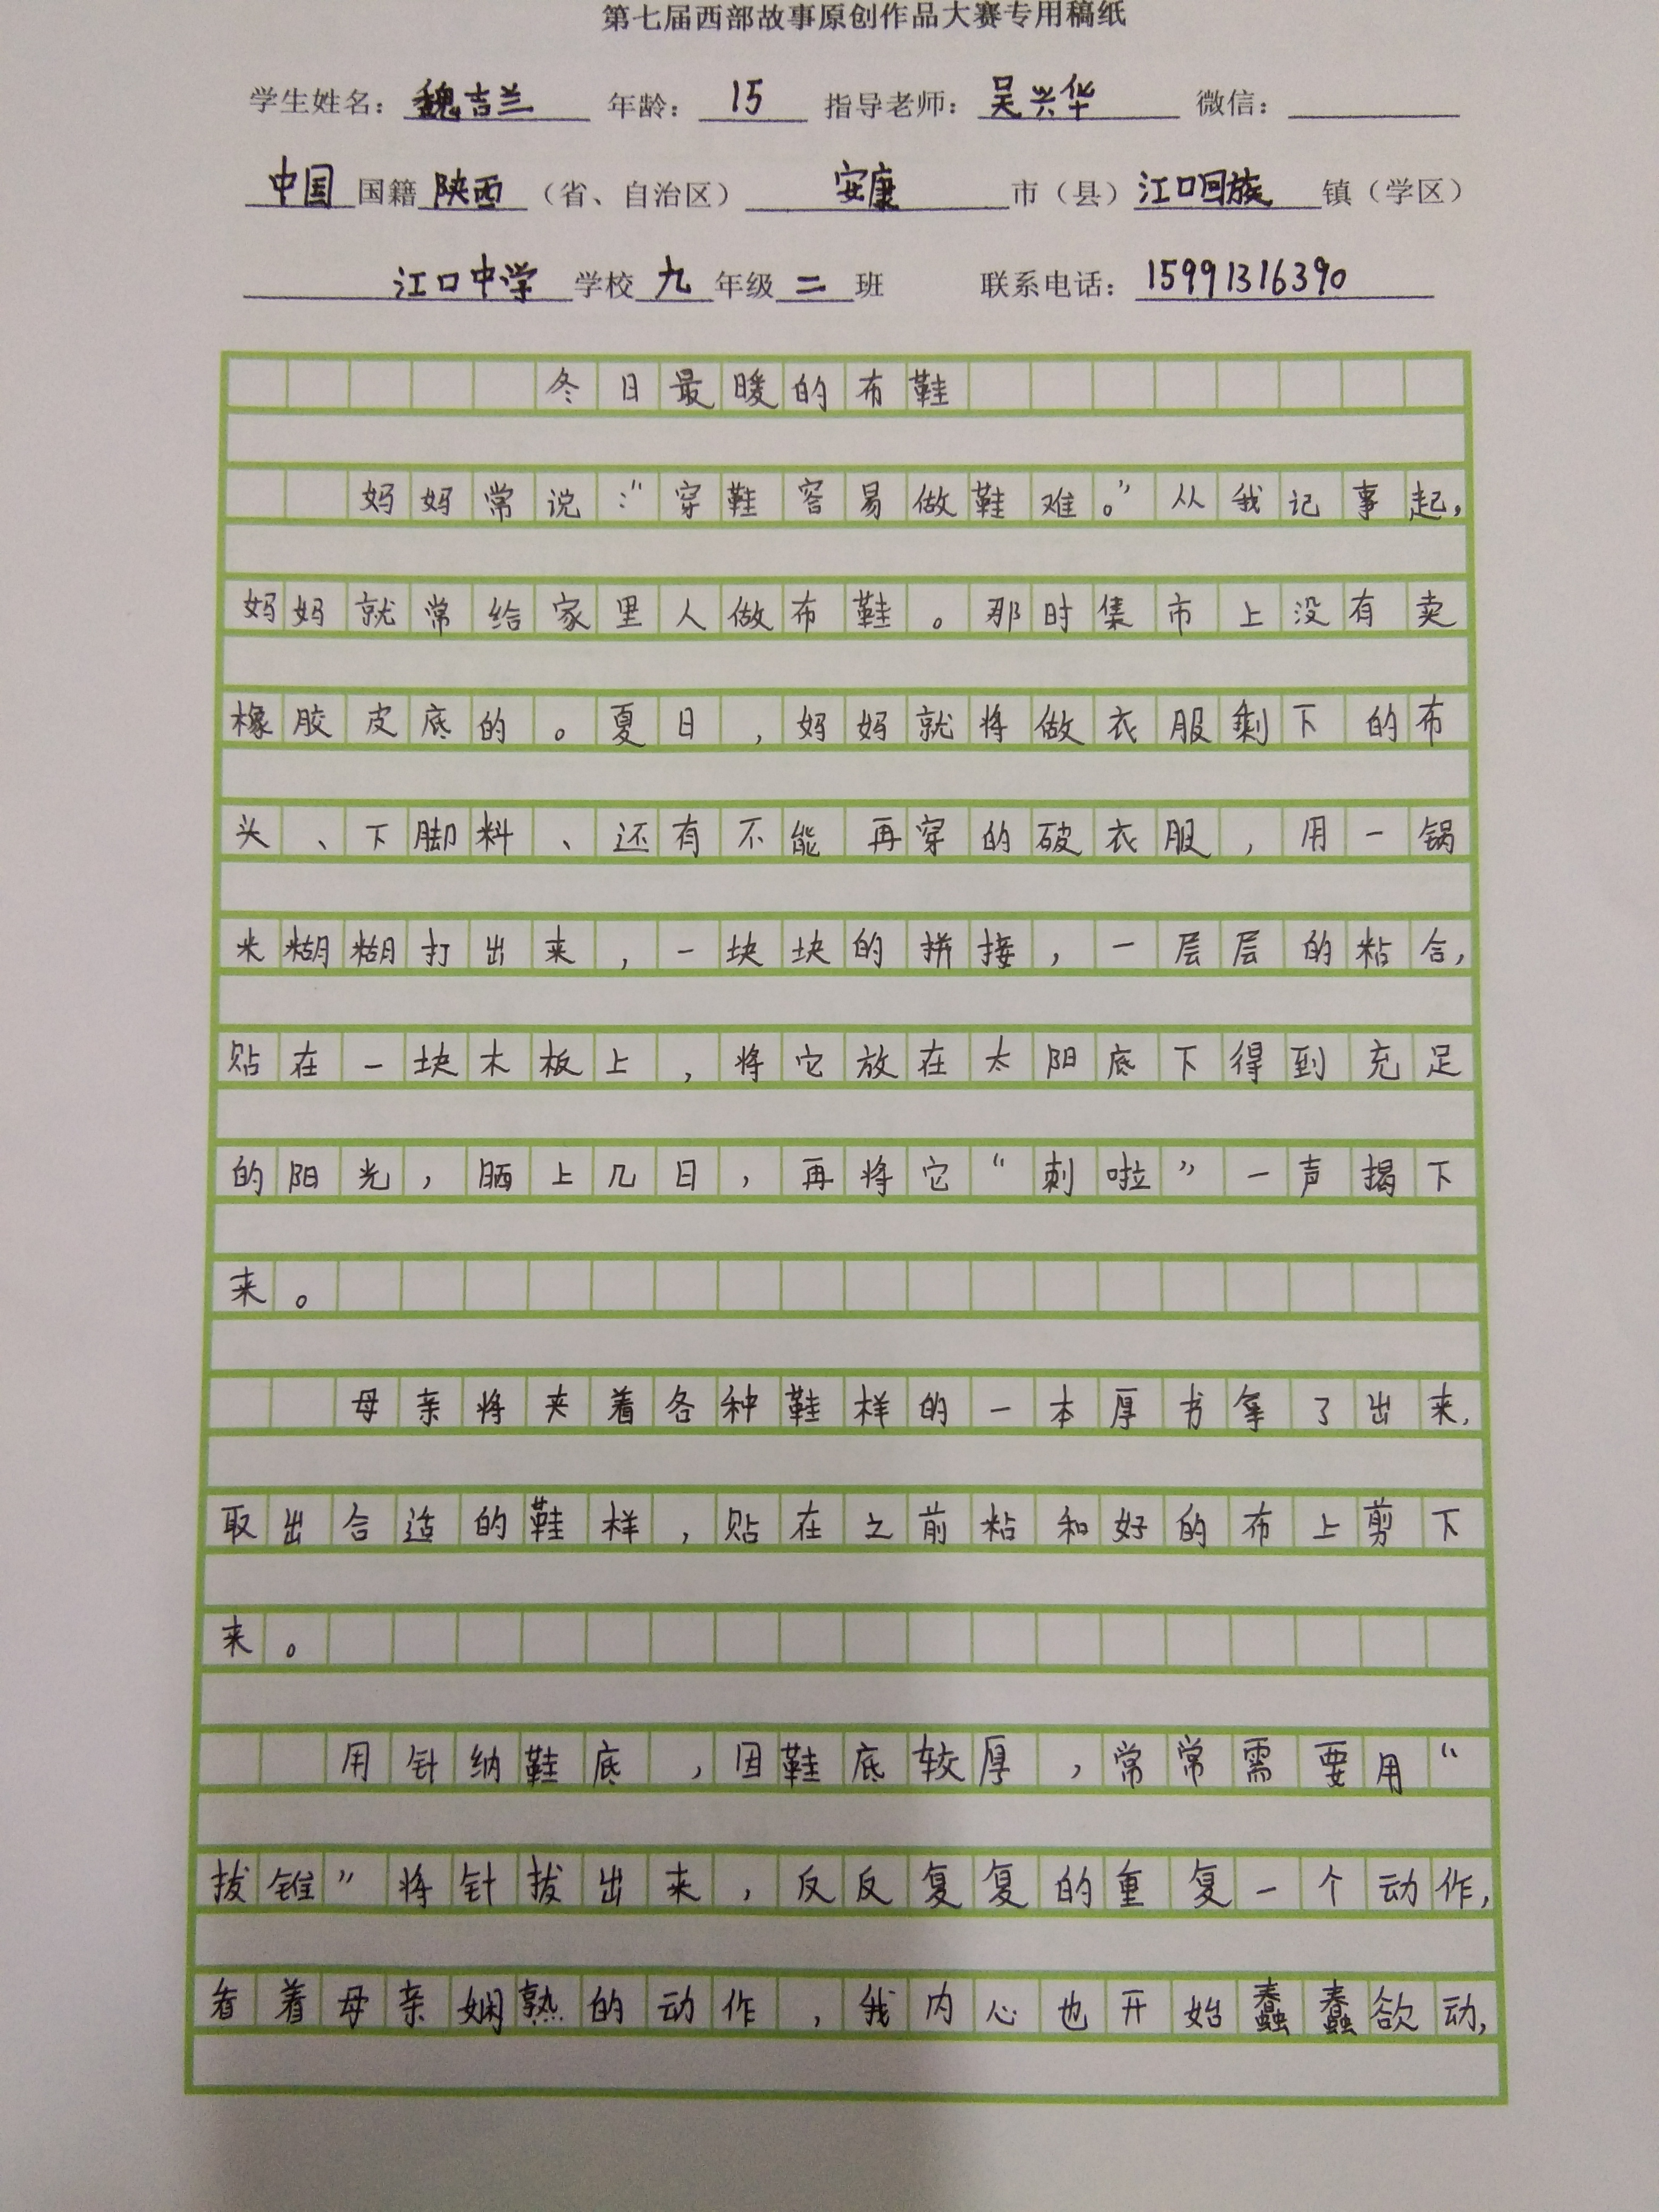 第七届西部故事原创作品大赛专用稿纸
学生姓名：魏吉兰 年龄：15 指导老师：吴兴华 微信：
中国国籍陕西（省、自治区）安康市（县）江口回族镇（学区）
江口中学学校九年级二班 联系电话：15991316390
冬日最暖的布鞋
妈妈常说：“穿鞋容易做鞋难。”从我记事起，
妈妈就常给家里人做布鞋。那时集市上没有卖
橡胶皮底的。夏日，妈妈就将做衣服剩下的布
头、下脚料、还有不能再穿的破衣服，用一锅
米糊糊打出来，一块块的拼接，一层层的粘合，
贴在一块木板上，将它放在太阳底下得到充足
的阳光，晒上几日，再将它“刺啦”一声揭下
来。
母亲将夹着各种鞋样的一本厚书拿了出来，
取出合适的鞋样，贴在之前粘和好的布上剪下
来。
用针纳鞋底，因鞋底较厚，常常需要用“
拔锥”将针拔出来，反反复复的重复一个动作，
看着母亲娴熟的动作，我内心也开始蠢蠢欲动，